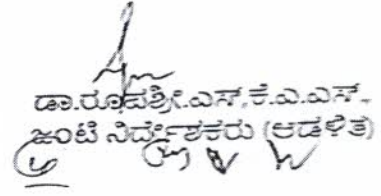 ಡಾ.ರೂಪಶ್ರೀ.ಎಸ್.ಕೆ.ಎ.ಎಸ್.
ಜಂಟಿ ನಿರ್ದೇಶಕರು (ಆಡಳಿತ)